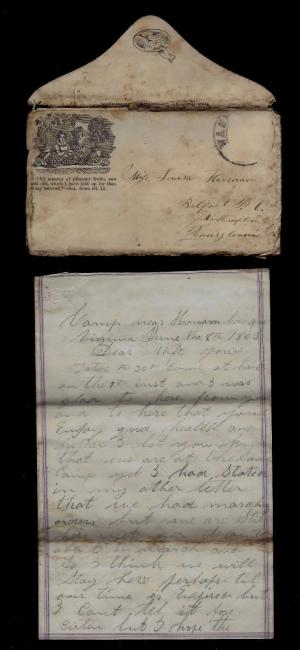 WAS
"All manner of pleasant fruits, new
and old, which I have laid up for thee,
O my beloved."
Miss Louisa
Belfast P. O.
Northampton
Pennsylvania
Camp near
Virginia June the 8th 1863
Dear Wife yours
Dated the 30th Come at hand
on the 1st inst and I was
glad to hear from you
and to here that you
Enjoy good health and
further I let you know
that we are at the Same
Camp yet I had Stated
in my other letter
that we had marching
orders but we are Still
So I think we will
Stay here perhaps til
our time is Expired but
I Cant tell it for
Certen but I hope the